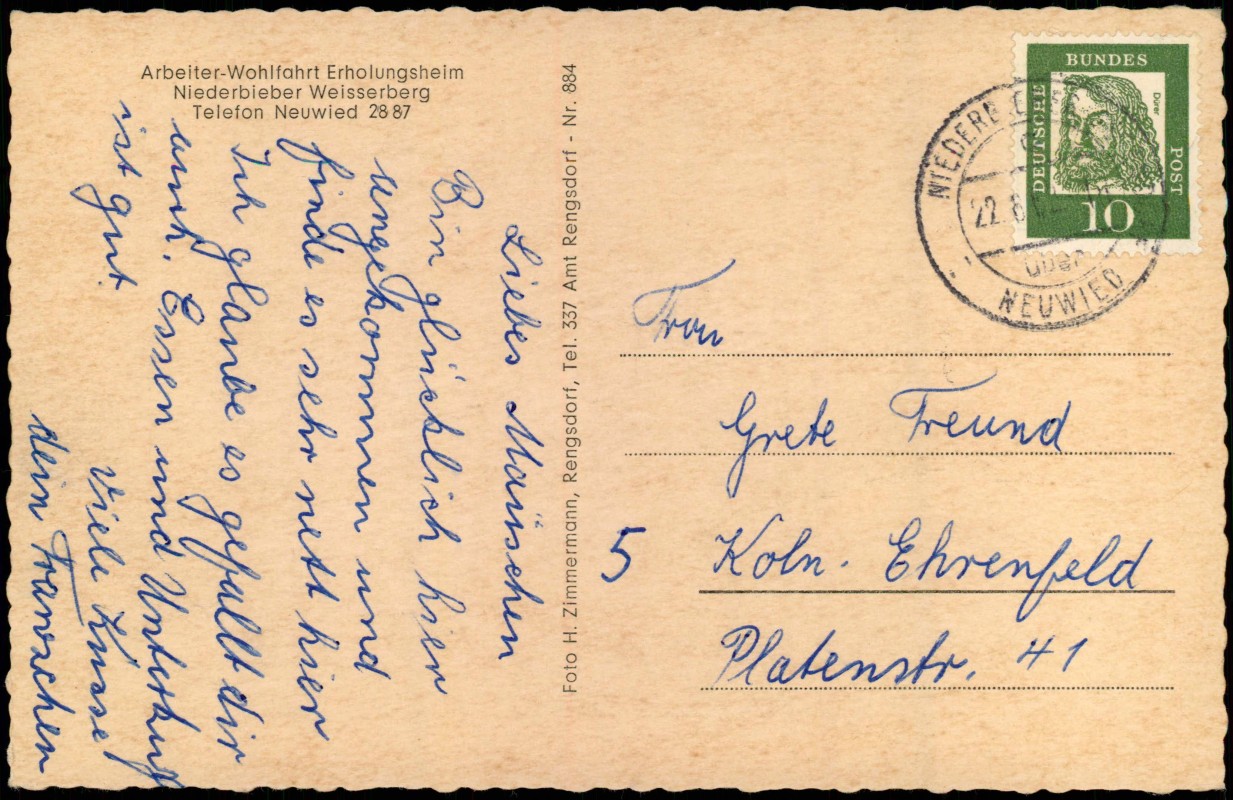 Arbeiter-Wohlfahrt Erholungsheim
Niederbieber Weisserberg
Telefon Neuwied 2887
Liebes Mäuschen
Bin glücklich hier
angekommen und
finde es sehr nett hier
Ich glaube es gefällt dir
auch. Essen und Unterkunft
ist gut.
Viele Küsse
dein Frauschen
Foto H. Zimmermann, Rengsdorf, Tel. 337 Amt Rengsdorf - Nr. 884
DEUTSCHE
BUNDES
POST
Dürer
10
22.8.
über
NEUWIED
Frau
Grete Freund
5 Köln. Ehrenfeld
Platenstr. 41